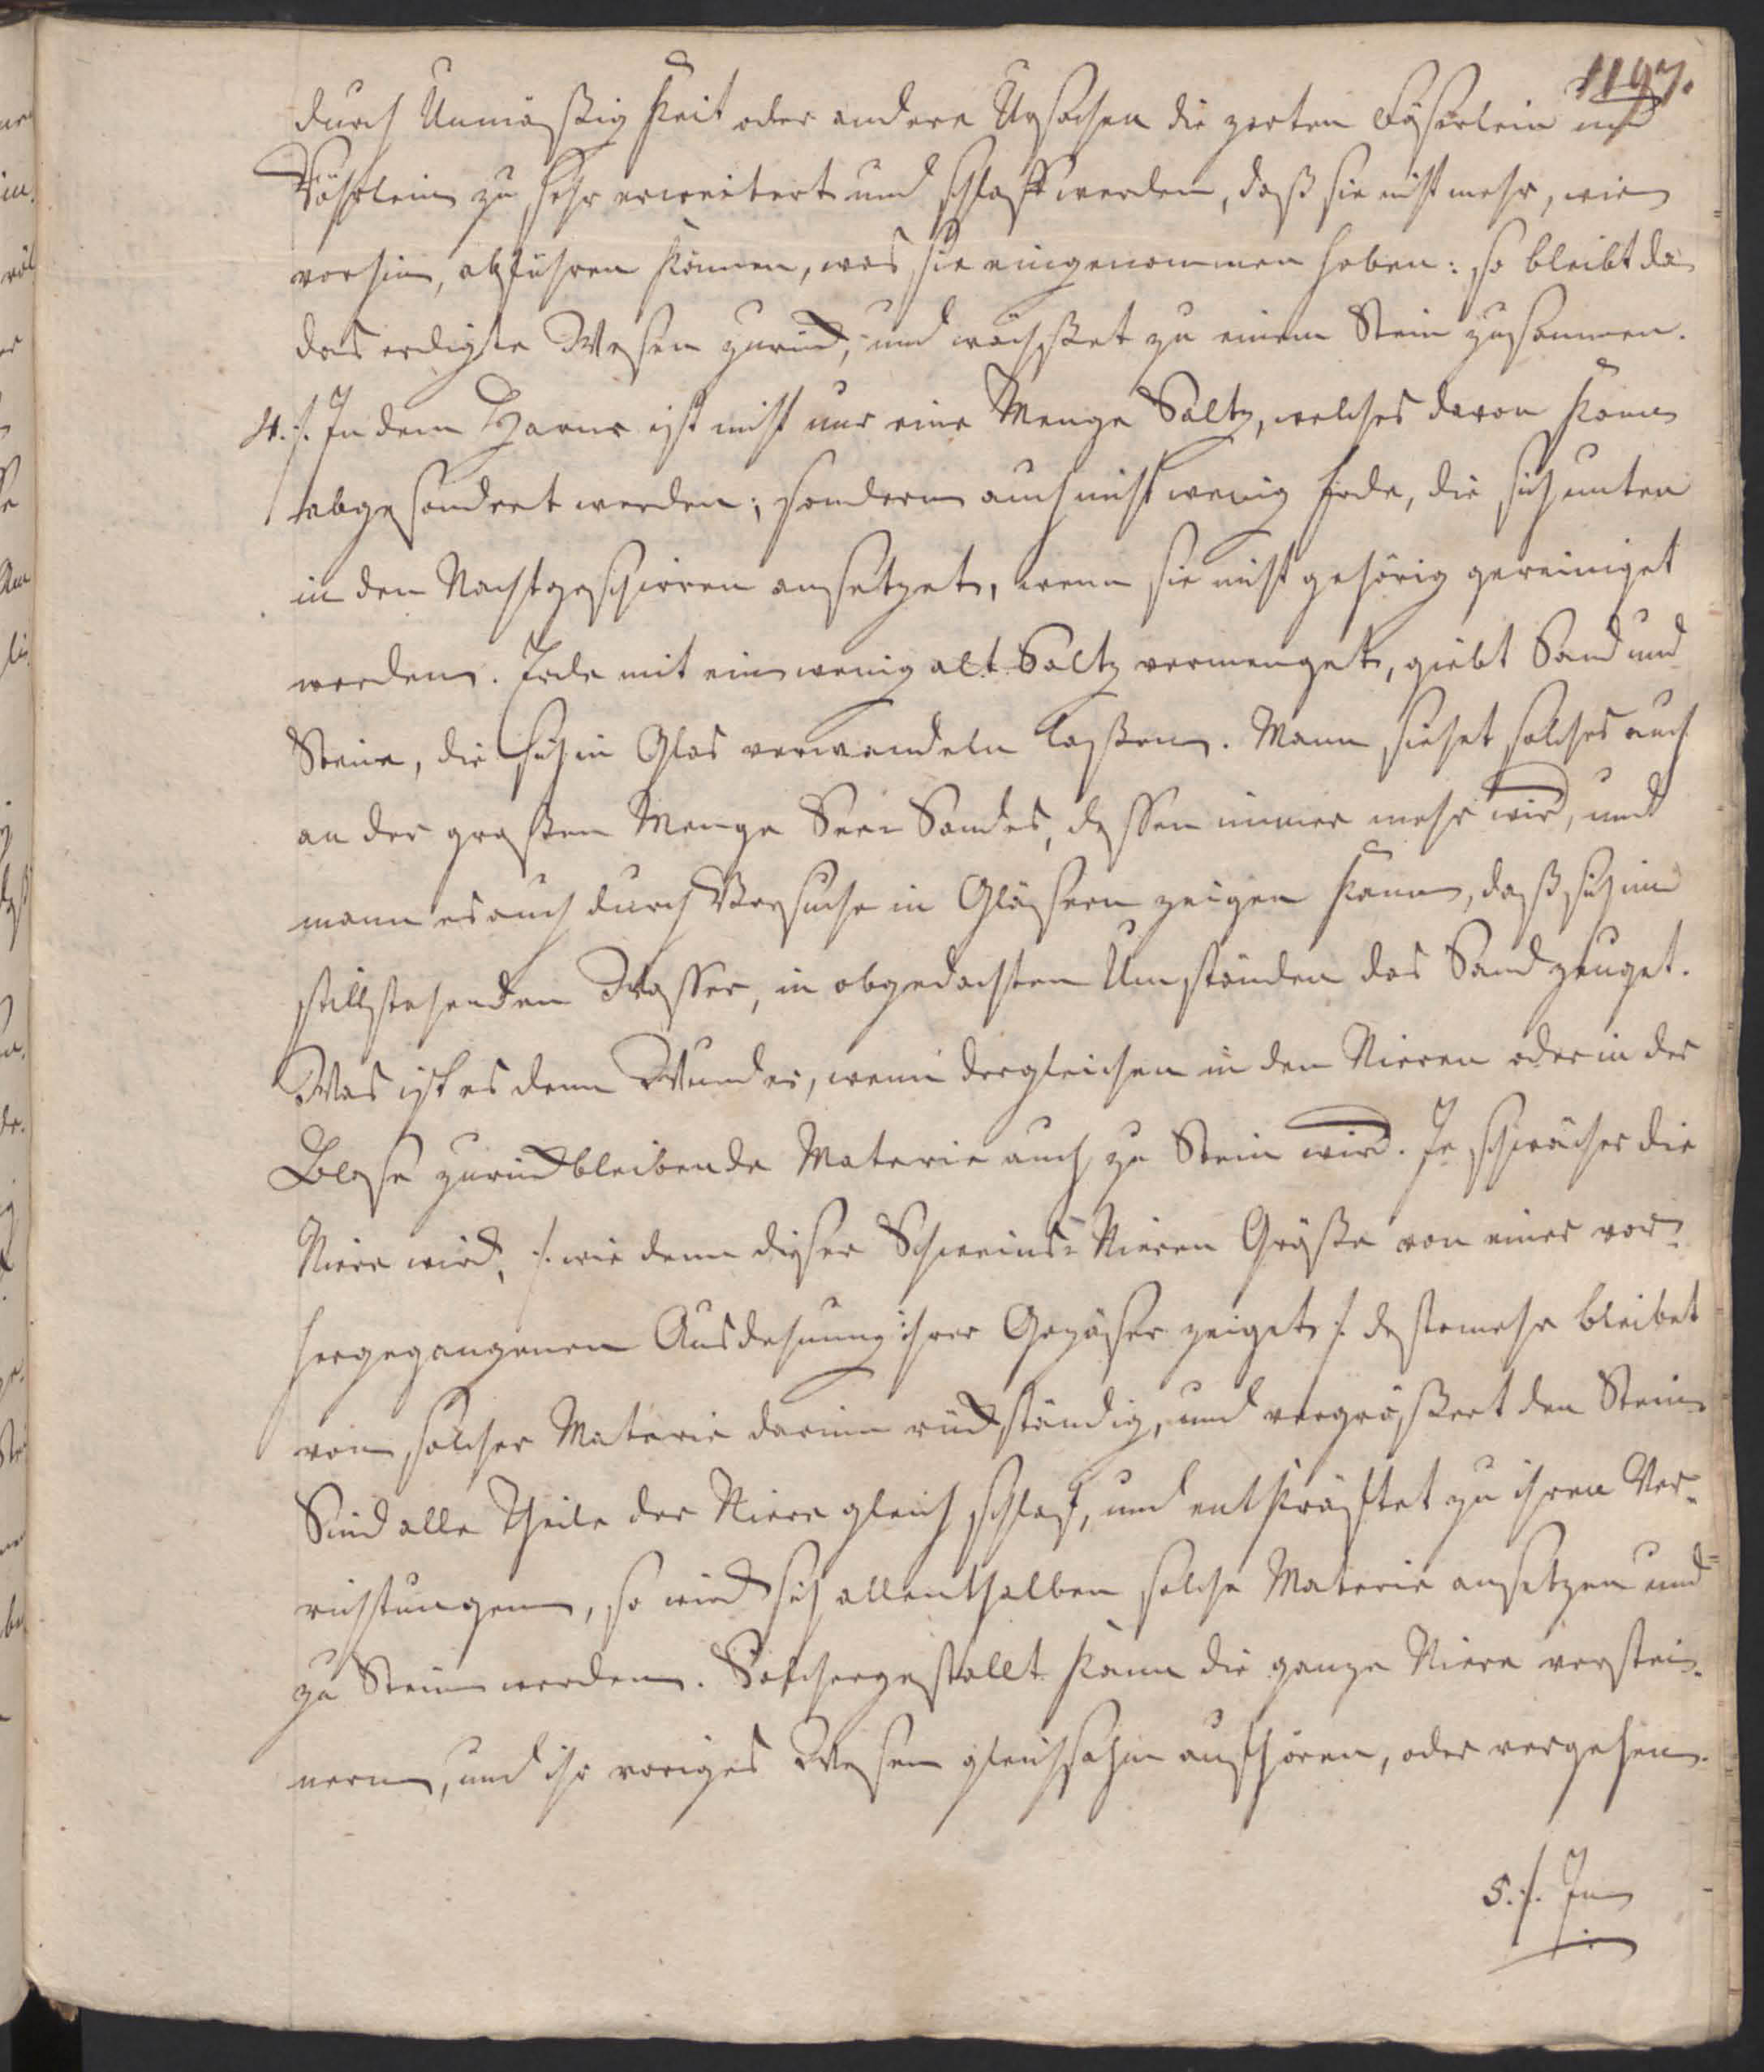 1197.
durch Unmäßigkeit oder andere Ursachen die zarten Fäserlein und
Röhrlein zu sehr erweitert und schlaff werden, daß sie nicht mehr, wie
vorhin, abführen können, was sie eingenommen haben: so bleibt da
das erdigte Wesen zurück, und wächset zu einem Stein zusammen.
4. /. In dem Harne ist nicht nur eine Menge Saltz, welches davon kann
abgesondert werden; sondern auch nicht wenig Erde, die sich unten
in den Nachtgeschirren ansetzet, wenn sie nicht gehörig gereiniget
werden. Erde mit ein wenig alt Saltz vermenget, giebt Sand und
Steine, die sich in Glas verwandeln laßen. Mann siehet solches auch
an der großen Menge See-Sandes, dessen immer mehr wird, und
mann es auch durch Versuche in Gläsern zeigen kann, daß sich im
stillstehenden Wasser, in obgedachten Umständen das Sand zeuget.
Was ist es denn Wunder, wenn dergleichen in den Nieren oder in der
Blase zurückbleibende Materie auch zu Stein wird. Je schwächer die
Niere wird, /. wie denn dieser Schweins-Nieren Größe von einer vor-
hergegangenen Ausdehnung ihrer Gefäße zeiget /. destomehr bleibet
von solcher Materie darinn rückständig, und vergrößert den Stein
Sind alle Theile der Niere gleich schlaf, und entkräftet zu ihren Ver-
richtungen, so wird sich allenthalben solche Materie ansetzen und
zu Stein werden. Solchergestallt kann die ganze Niere verstei-
nern, und ihr voriges Wesen gleichsahm aufhören, oder vergehen.
5. /. In